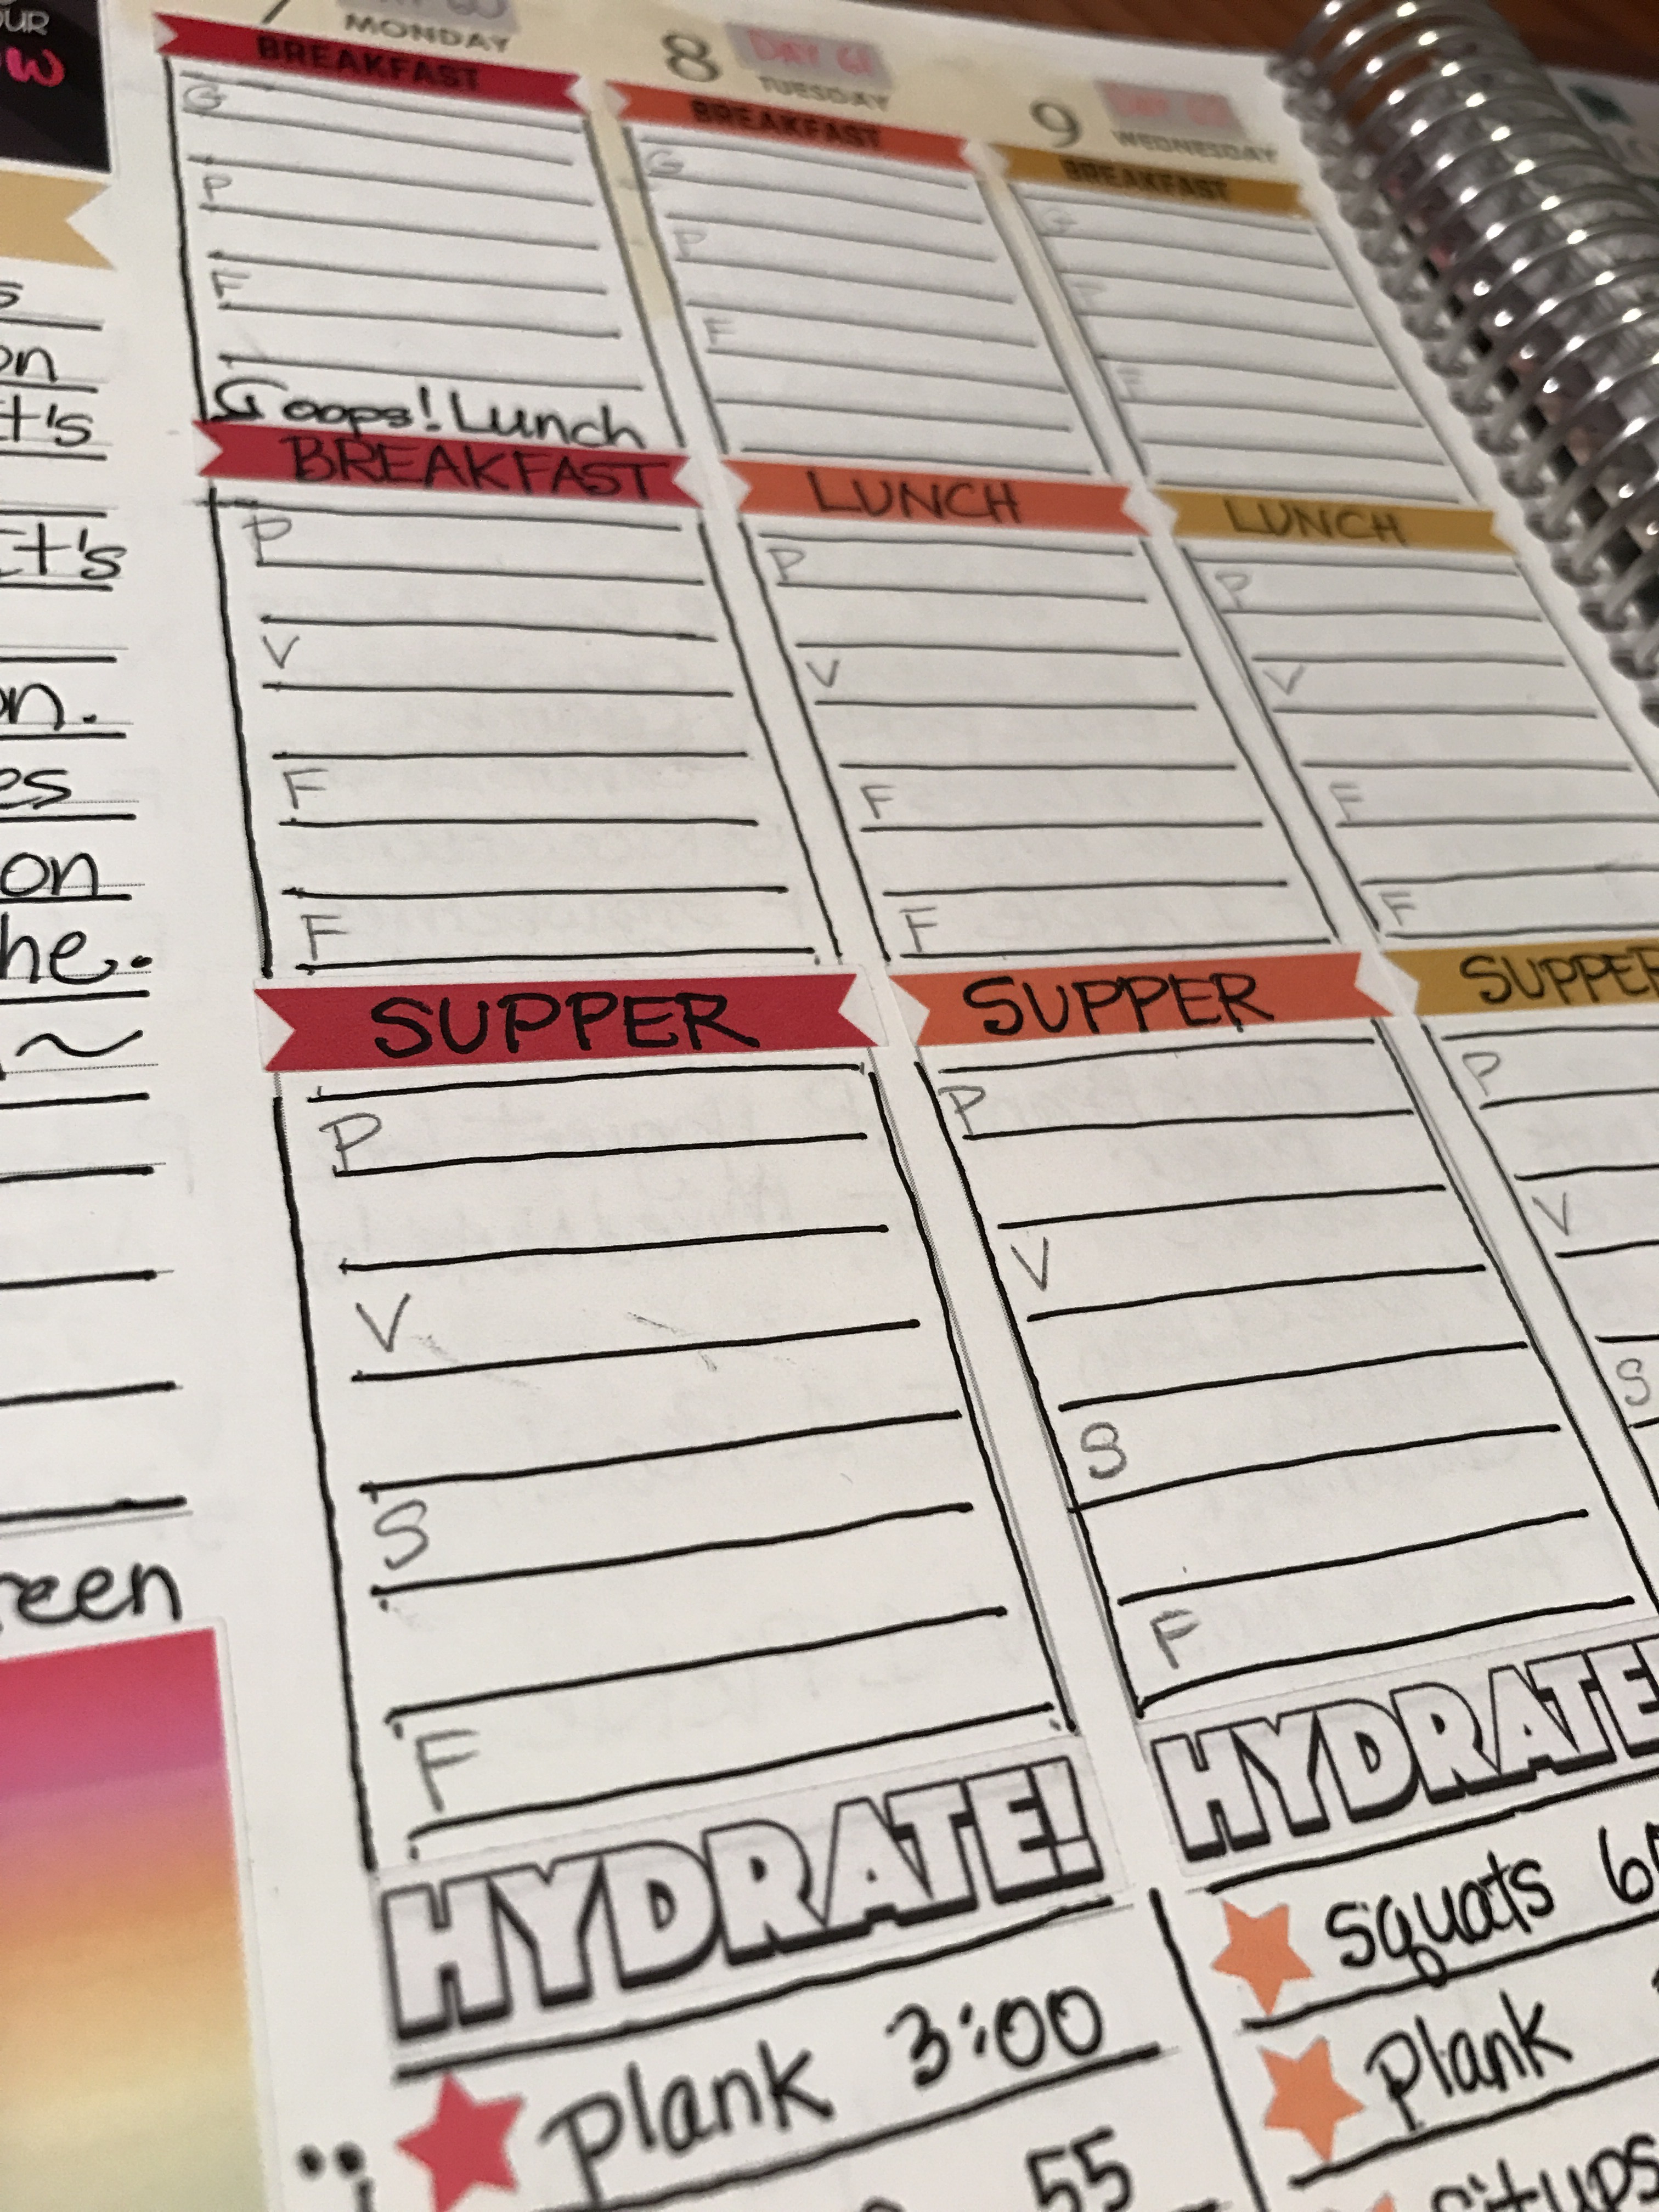 OUR
OW
s
on
it's
it's
on.
es
on
he.
~
reen
7
MONDAY
BREAKFAST
G
P
F
oops! Lunch
BREAKFAST
P
V
F
F
SUPPER
P
V
S
F
HYDRATE!
Plank 3:00
55
8 DAY 61
TUESDAY
BREAKFAST
G
P
F
LUNCH
P
V
F
F
SUPPER
P
V
S
F
HYDRATE
Squats
Plank
situps
9 DAY
WEDNESDAY
BREAKFAST
G
P
F
LUNCH
P
V
F
F
SUPPER
P
V
S